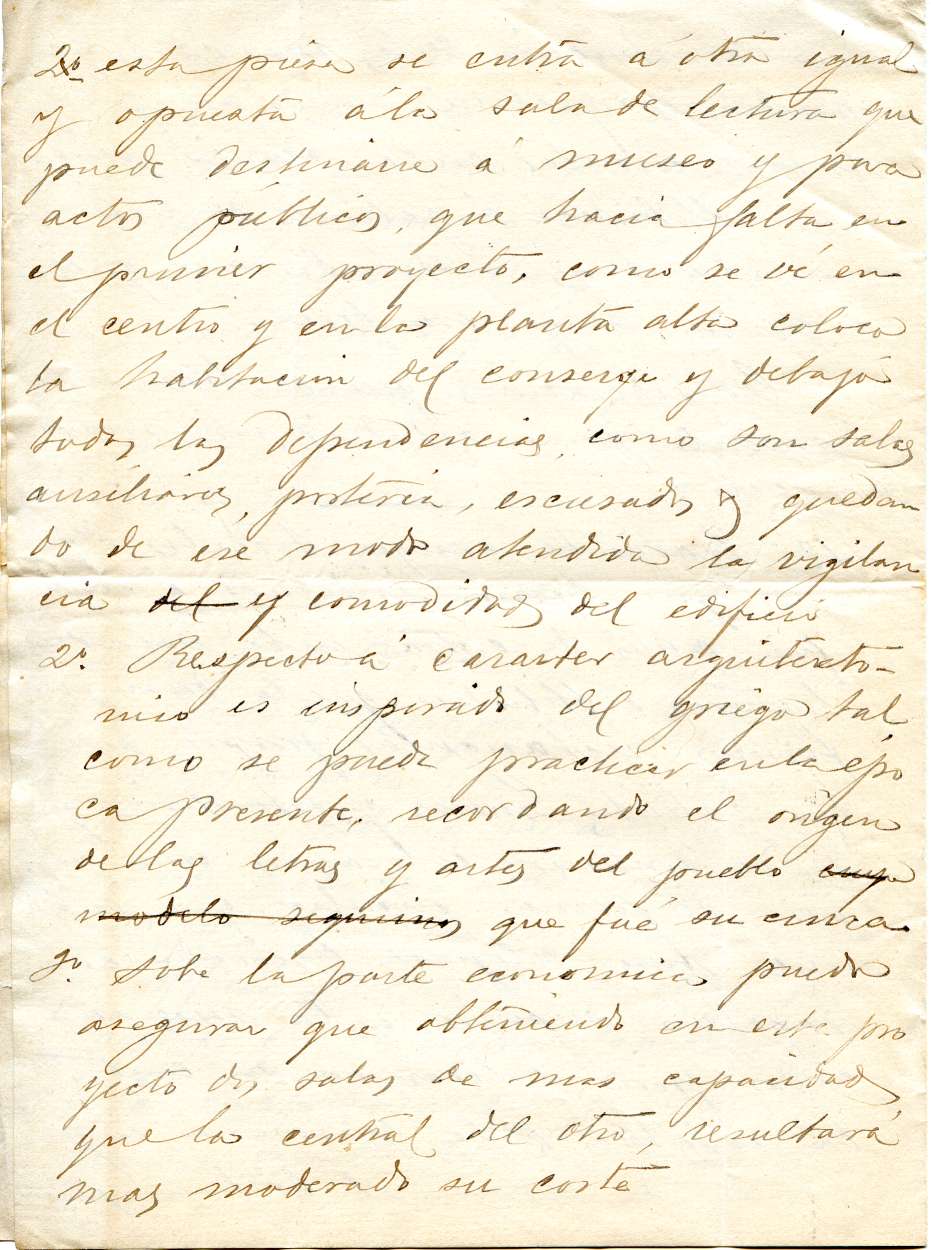 esta pieza se entra á otra igual
y opuesta á la sala de lectura que
puede destinarse á museo y para
actos públicos, que hacia falta en
el primer proyecto, como se vé en
el centro y en la planta alta coloco
la habitacion del conserge y debajo
todas las dependencias como son salas
ausiliares, porteria, escusados y quedan
do de ese modo atendida la vigilan
cia del y comodidad del edificio
2º. Respecto á caracter arquitectó-
nico es inspirado del griego tal
como se puede practicar en la épo
ca presente, recordando el origen
de las letras y artes del pueblo cuyo
modelo seguimos que fué su cuna.
3º. Sobre la parte economica puedo
asegurar que obteniendo en este pro
yecto dos salas de mas capacidad
que la central del otro, resultará
mas moderado su coste